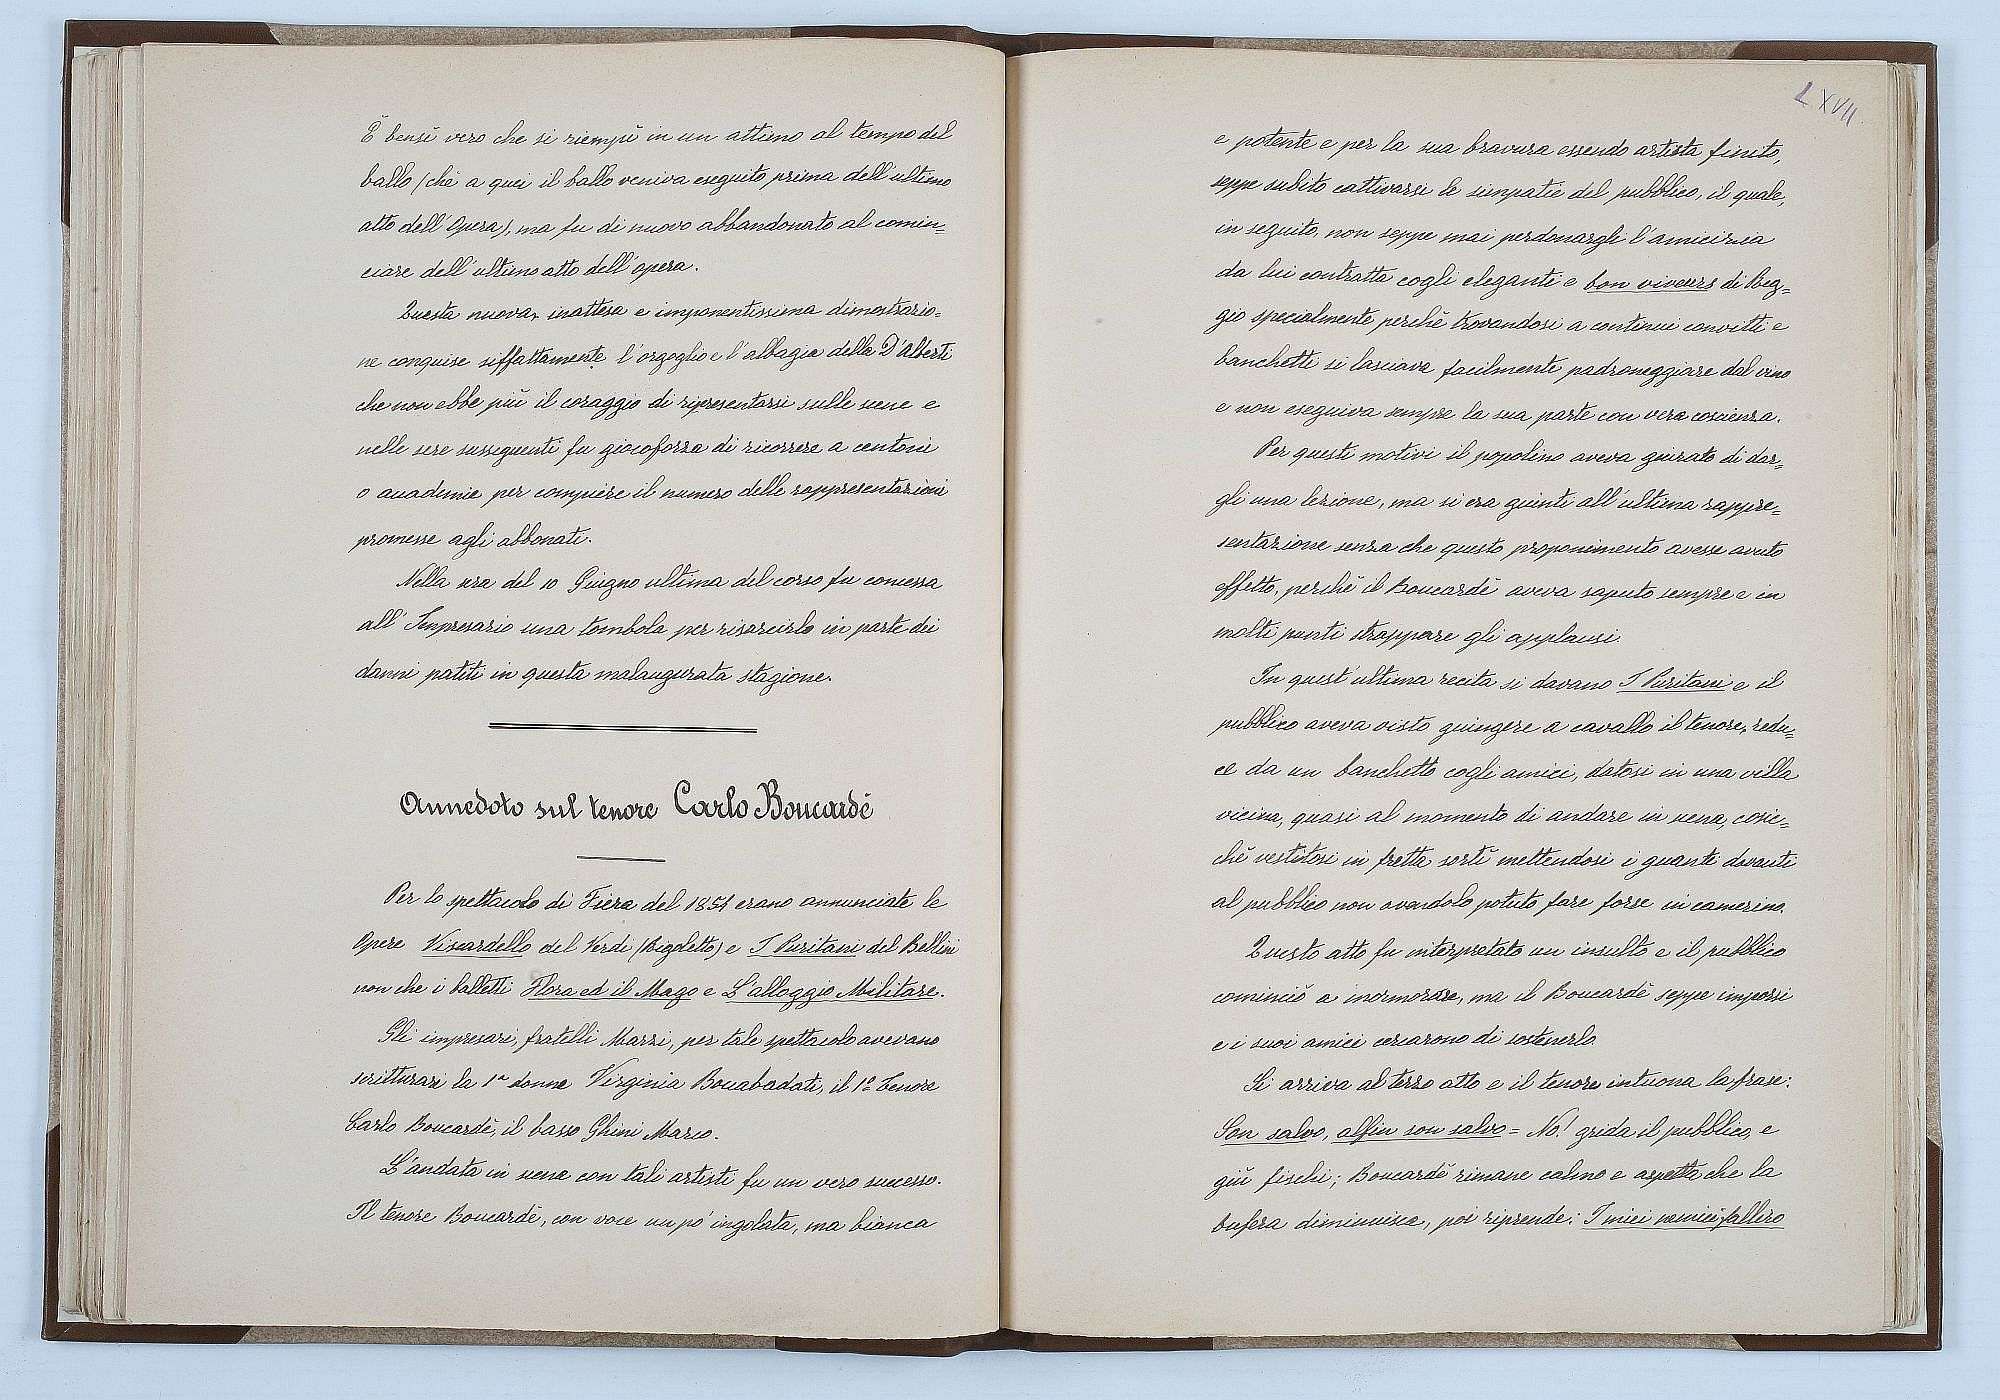 È bensì vero che si riempì in un attimo al tempo del
ballo (chè a quei il ballo veniva eseguito prima dell'ultimo
atto dell'Opera), ma fu di nuovo abbandonato al comin=
ciare dell'ultimo atto dell'opera.
Questa nuova, inattesa e imponentissima dimostrazio=
ne conquise siffattamente l'orgoglio e l'albagia della D'Alberti
che non ebbe più il coraggio di ripresentarsi sulle scene e
nelle sere susseguenti fu giocoforza di ricorrere a centoni
o accademie per compiere il numero delle rappresentazioni
promesse agli abbonati.
Nella sera del 10 Giugno ultima del corso fu concessa
all'Impresario una tombola per risarcirlo in parte dei
danni patiti in questa malaugurata stagione.
Annedoto sul tenore Carlo Boucardè
Per lo spettacolo di Fiera del 1854 erano annunciate le
Opere Viscardello del Verdi (Rigoletto) e I Puritani del Bellini
non che i balletti Flora ed il Mago e L'alloggio Militare.
Gli impresari, fratelli Marzi, per tale spettacolo avevano
scritturari la 1ª donna Virginia Boccabadati, il 1º tenore
Carlo Boucardè, il basso Ghini Marco.
L'andata in scena con tali artisti fu un vero successo.
Il tenore Boucardè, con voce un pò ingolata, ma bianca
LXVII
e potente e per la sua bravura essendo artista finito,
seppe subito cattivarsi le simpatie del pubblico, il quale,
in seguito, non seppe mai perdonargli l'amicizia
da lui contratta cogli eleganti e bon viveurs di Reg=
gio specialmente perchè trovandosi a continui convitti e
banchetti si lasciava facilmente padroneggiare dal vino
e non eseguiva sempre la sua parte con vera coscienza.
Per questi motivi il popolino aveva giurato di dar=
gli una lezione, ma si era giunti all'ultima rappre=
sentazione senza che questo proponimento avesse avuto
effetto, perchè il Boucardè aveva saputo sempre e in
molti punti strappare gli applausi.
In quest'ultima recita si davano I Puritani e il
pubblico aveva visto giungere a cavallo il tenore, redu=
ce da un banchetto cogli amici, datosi in una villa
vicina, quasi al momento di andare in scena, cosic=
chè vestitosi in fretta sortì mettendosi i guanti davanti
al pubblico non avendolo potuto fare forse in camerino.
Questo atto fu interpretato un insulto e il pubblico
cominciò a mormorare, ma il Boucardè seppe imporsi
e i suoi amici cercarono di sostenerlo.
Si arriva al terzo atto e il tenore intuona la frase:
Son salvo, alfin son salvo = No! grida il pubblico, e
giù fischi; Boucardè rimane calmo e aspetta che la
bufera diminuisca, poi riprende: I miei nemici falliro